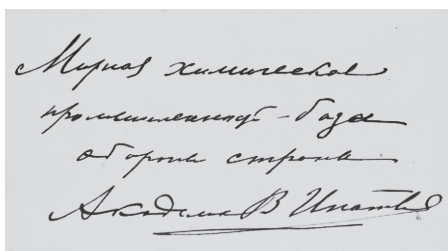 Мирная химическая
промышленность - база
обороны страны
Академик В Ипатьев